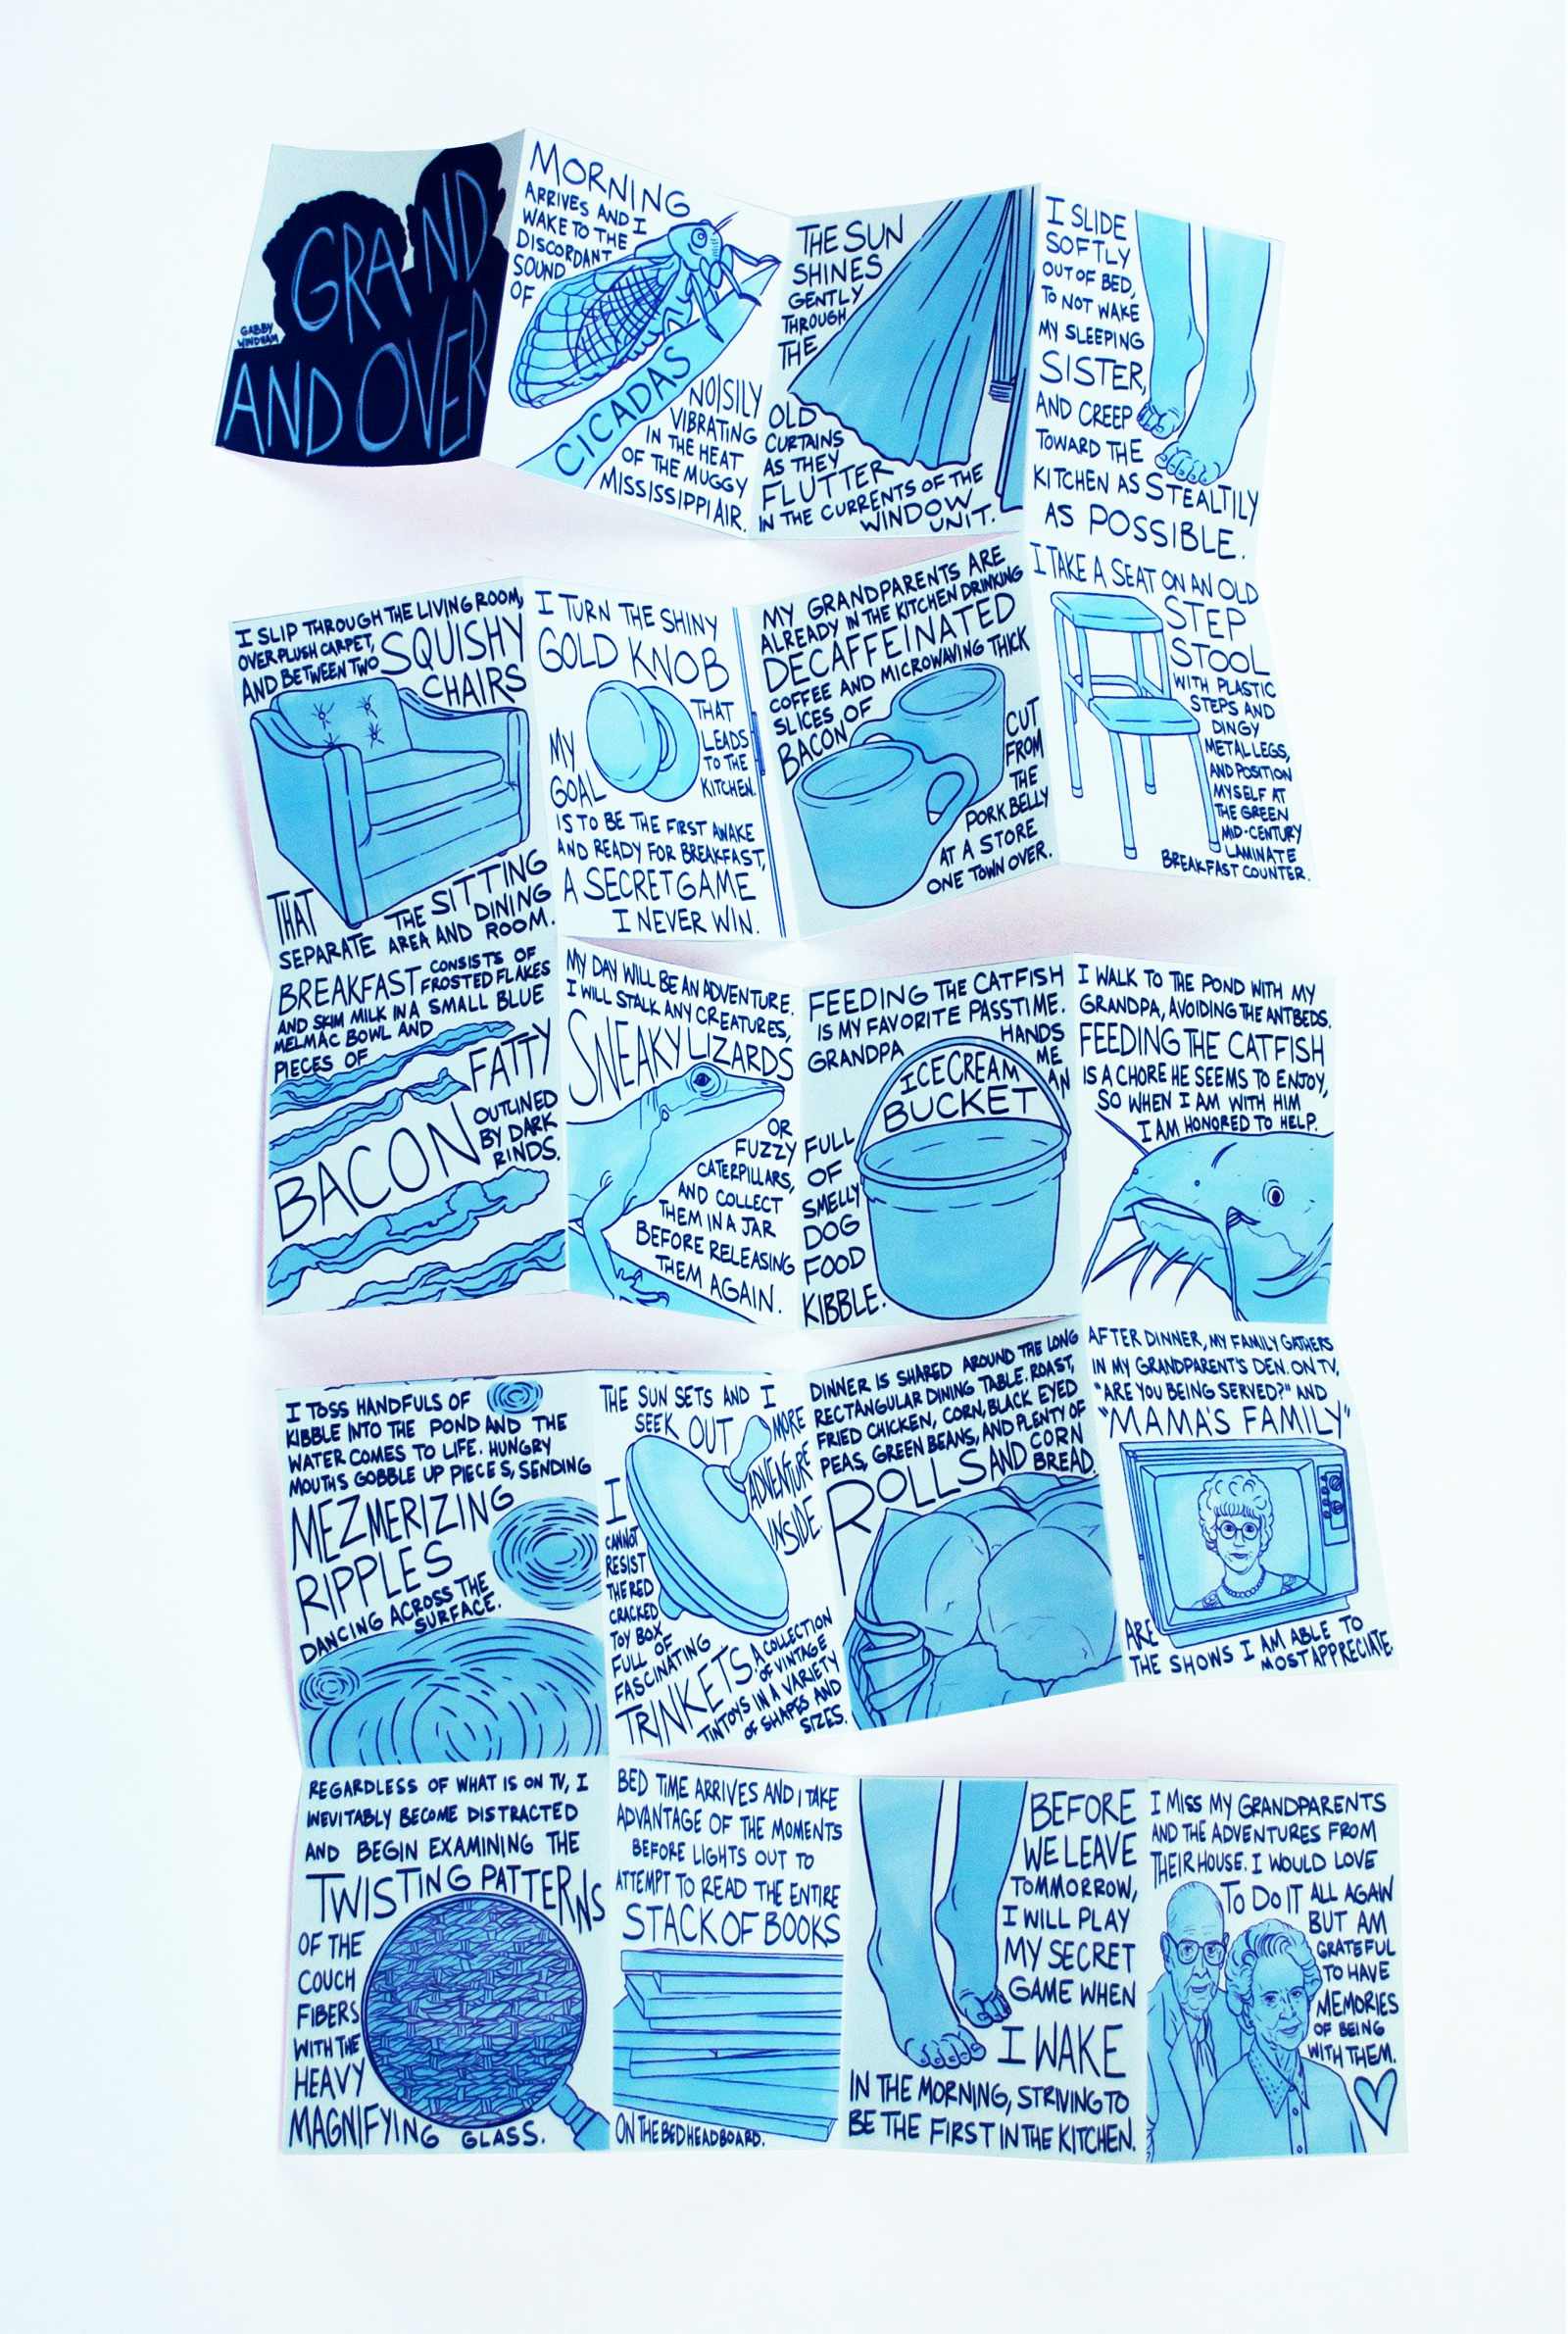 GRAND
AND OVER
GABBY
WINDHAM
MORNING
ARRIVES AND I
WAKE TO THE
DISCORDANT
SOUND
OF
CICADAS
NOISILY
VIBRATING
IN THE HEAT
OF THE MUGGY
MISSISSIPPI AIR.
THE SUN
SHINES
GENTLY
THROUGH
THE
OLD
CURTAINS
AS THEY
FLUTTER
IN THE CURRENTS OF THE
WINDOW
UNIT.
I SLIDE
SOFTLY
OUT OF BED,
TO NOT WAKE
MY SLEEPING
SISTER,
AND CREEP
TOWARD THE
KITCHEN AS STEALTILY
AS POSSIBLE.
I SLIP THROUGH THE LIVING ROOM,
OVER PLUSH CARPET,
AND BETWEEN TWO SQUISHY
CHAIRS
THAT
SEPARATE THE SITTING
AREA AND DINING
ROOM.
I TURN THE SHINY
GOLD KNOB
THAT
LEADS
TO THE
KITCHEN.
MY
GOAL
IS TO BE THE FIRST AWAKE
AND READY FOR BREAKFAST,
A SECRET GAME
I NEVER WIN.
MY GRANDPARENTS ARE
ALREADY IN THE KITCHEN DRINKING
DECAFFEINATED
COFFEE AND MICROWAVING THICK
SLICES OF
BACON
CUT
FROM
THE
PORK BELLY
AT A STORE
ONE TOWN OVER.
I TAKE A SEAT ON AN OLD
STEP
STOOL
WITH PLASTIC
STEPS AND
DINGY
METAL LEGS,
AND POSITION
MYSELF AT
THE GREEN
MID-CENTURY
LAMINATE
BREAKFAST COUNTER.
BREAKFAST CONSISTS OF
FROSTED FLAKES
AND SKIM MILK IN A SMALL BLUE
MELMAC BOWL AND
PIECES OF
FATTY
BACON
OUTLINED
BY DARK
RINDS.
MY DAY WILL BE AN ADVENTURE.
I WILL STALK ANY CREATURES,
SNEAKY LIZARDS
OR
FUZZY
CATERPILLARS,
AND COLLECT
THEM IN A JAR
BEFORE RELEASING
THEM AGAIN.
FEEDING THE CATFISH
IS MY FAVORITE PASSTIME.
GRANDPA HANDS
ME
AN
ICECREAM
BUCKET
FULL
OF
SMELLY
DOG
FOOD
KIBBLE.
I WALK TO THE POND WITH MY
GRANDPA, AVOIDING THE ANTBEDS.
FEEDING THE CATFISH
IS A CHORE HE SEEMS TO ENJOY,
SO WHEN I AM WITH HIM
I AM HONORED TO HELP.
I TOSS HANDFULS OF
KIBBLE INTO THE POND AND THE
WATER COMES TO LIFE. HUNGRY
MOUTHS GOBBLE UP PIECES, SENDING
MEZMERIZING
RIPPLES
DANCING ACROSS THE
SURFACE.
THE SUN SETS AND I
SEEK OUT MORE
ADVENTURE
INSIDE.
I
CANNOT
RESIST
THE RED
CRACKED
TOY BOX
FULL OF
FASCINATING
TRINKETS, A COLLECTION
OF VINTAGE
TIN TOYS IN A VARIETY
OF SHAPES AND
SIZES.
DINNER IS SHARED AROUND THE LONG
RECTANGULAR DINING TABLE. ROAST,
FRIED CHICKEN, CORN, BLACK EYED
PEAS, GREEN BEANS, AND PLENTY OF
ROLLS AND CORN
BREAD.
AFTER DINNER, MY FAMILY GATHERS
IN MY GRANDPARENT'S DEN. ON TV,
"ARE YOU BEING SERVED?" AND
"MAMA'S FAMILY"
ARE
THE SHOWS I AM ABLE TO
MOST APPRECIATE.
REGARDLESS OF WHAT IS ON TV, I
INEVITABLY BECOME DISTRACTED
AND BEGIN EXAMINING THE
TWISTING PATTERNS
OF THE
COUCH
FIBERS
WITH THE
HEAVY
MAGNIFYING GLASS.
BED TIME ARRIVES AND I TAKE
ADVANTAGE OF THE MOMENTS
BEFORE LIGHTS OUT TO
ATTEMPT TO READ THE ENTIRE
STACK OF BOOKS
ON THE BED HEADBOARD.
BEFORE
WE LEAVE
TOMMORROW,
I WILL PLAY
MY SECRET
GAME WHEN
I WAKE
IN THE MORNING, STRIVING TO
BE THE FIRST IN THE KITCHEN.
I MISS MY GRANDPARENTS
AND THE ADVENTURES FROM
THEIR HOUSE. I WOULD LOVE
TO DO IT ALL AGAIN
BUT AM
GRATEFUL
TO HAVE
MEMORIES
OF BEING
WITH THEM.